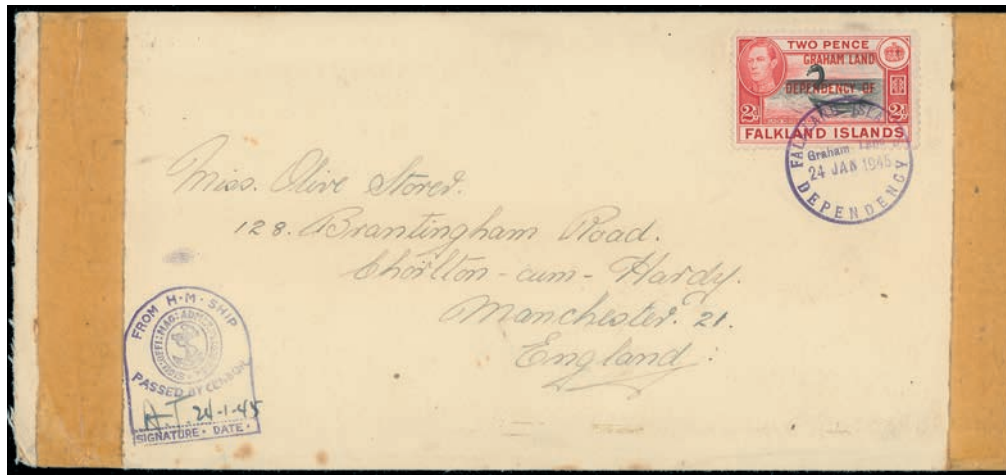 TWO PENCE
GRAHAM LAND
DEPENDENCY OF
2d 2d
FALKLAND ISLANDS
FALKLAND ISLANDS
Graham Land
24 JAN 1945
DEPENDENCY
Miss. Olive Storer.
128. Brantingham Road.
Chorlton-cum-Hardy.
Manchester. 21.
England.
FROM H·M·SHIP
PASSED BY CENSOR
24-1-45
SIGNATURE · DATE ·